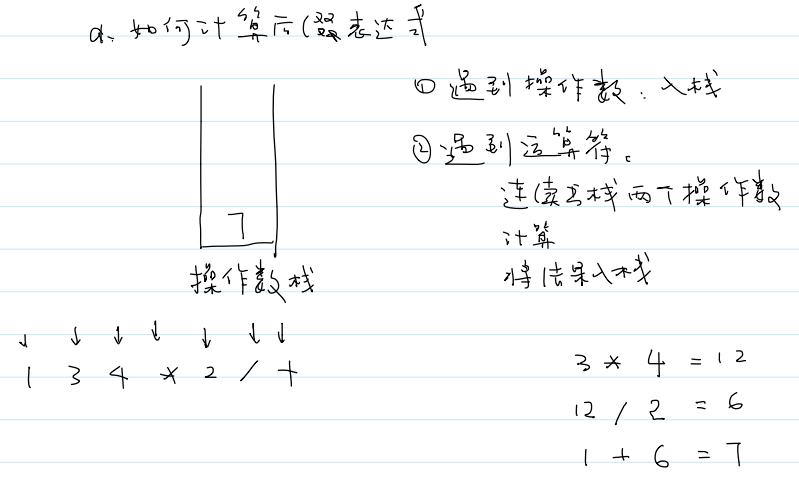 a. 如何计算后缀表达式
① 遇到操作数：入栈
② 遇到运算符。
连续出栈两个操作数
计算
将结果入栈
7
操作数栈
↓ ↓ ↓ ↓ ↓ ↓ ↓
1 3 4 * 2 / +
3 * 4 = 12
12 / 2 = 6
1 + 6 = 7